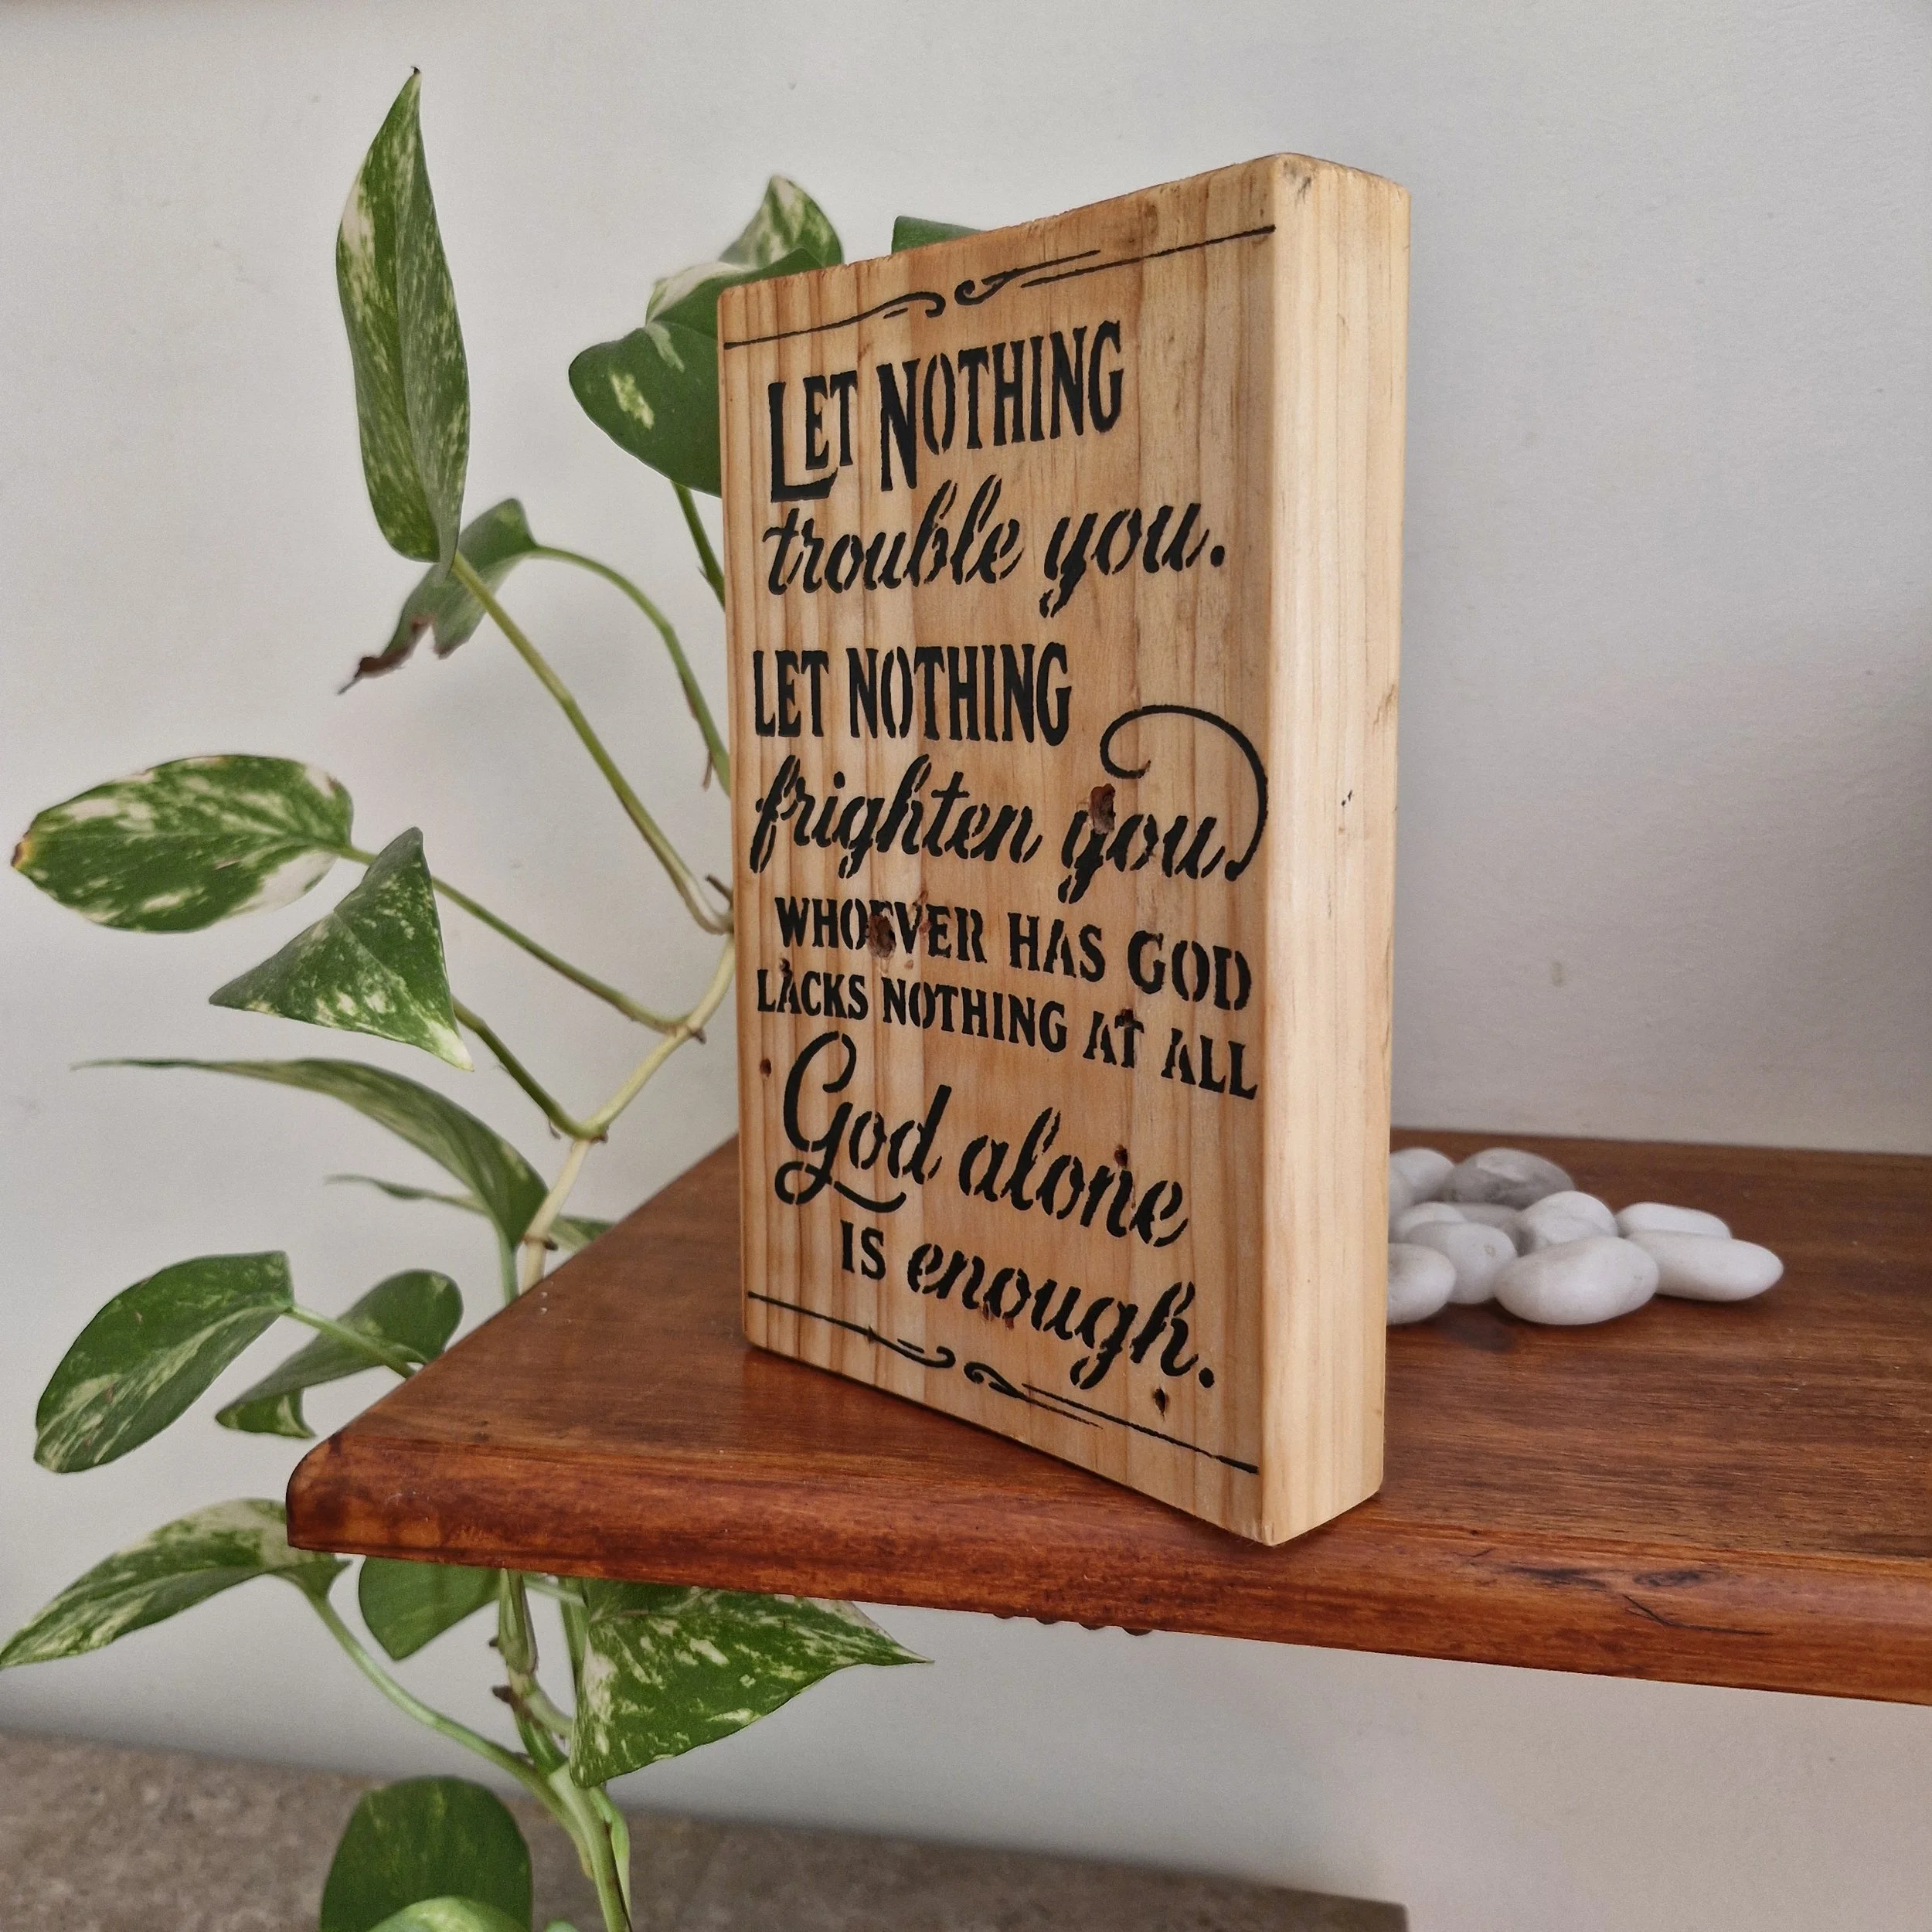 LET NOTHING
trouble you.
LET NOTHING
frighten you
WHOEVER HAS GOD
LACKS NOTHING AT ALL
God alone
IS enough.